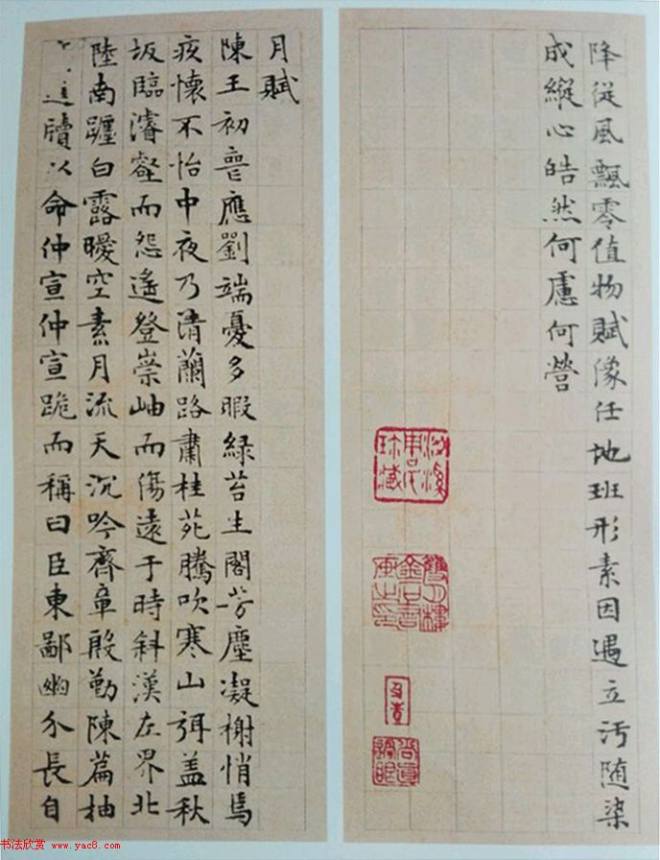 降從風飄零值物賦像任地班形素因遇立汚随染
成縱心皓然何慮何營
月賦
陳王初喪應劉端憂多暇綠苔生閣芳塵凝榭悄焉
疚懷不怡中夜乃清蘭路肅桂苑騰吹寒山弭盖秋
坂臨濬壑而怨遙登崇岫而傷遠于時斜漢左界北
陸南躔白露曖空素月流天沉吟齊章殷勤陳篇抽
牘以命仲宣仲宣跪而稱曰臣東鄙幽介長自
书法欣赏 www.yac8.com